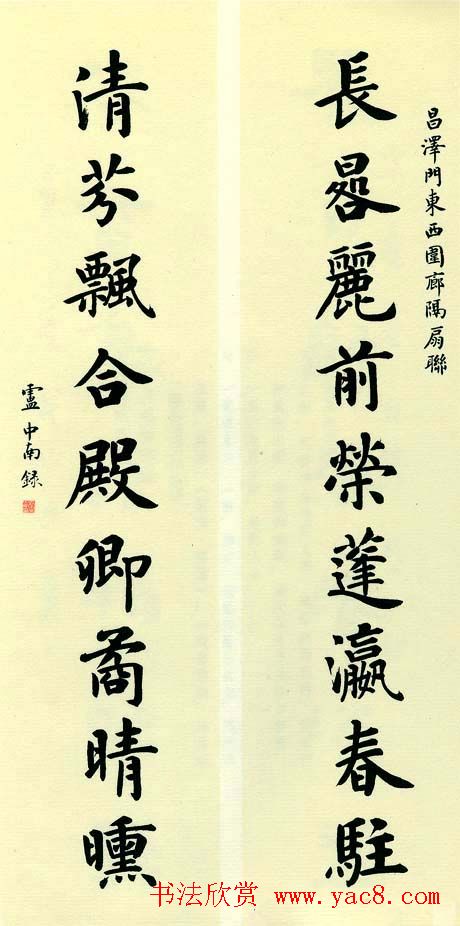 昌澤門東西圍廊隔扇聯
長晷麗前榮蓬瀛春駐
清芬飄合殿卿矞晴曛
盧中南録
书法欣赏 www.yac8.com